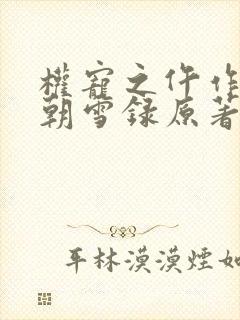 權寵之仵作
朝雪錄原著
平林漠漠煙如